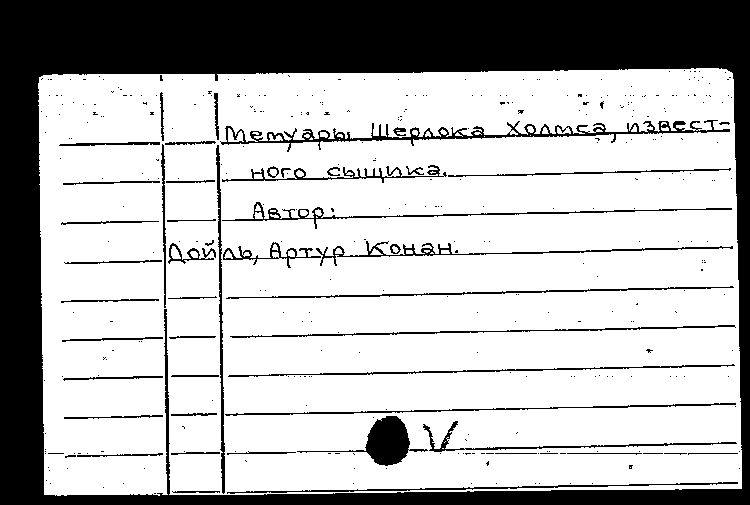 Мемуары Шерлока Холмса, извест-
ного сыщика.
Автор:
Дойль, Артур Конан.
V